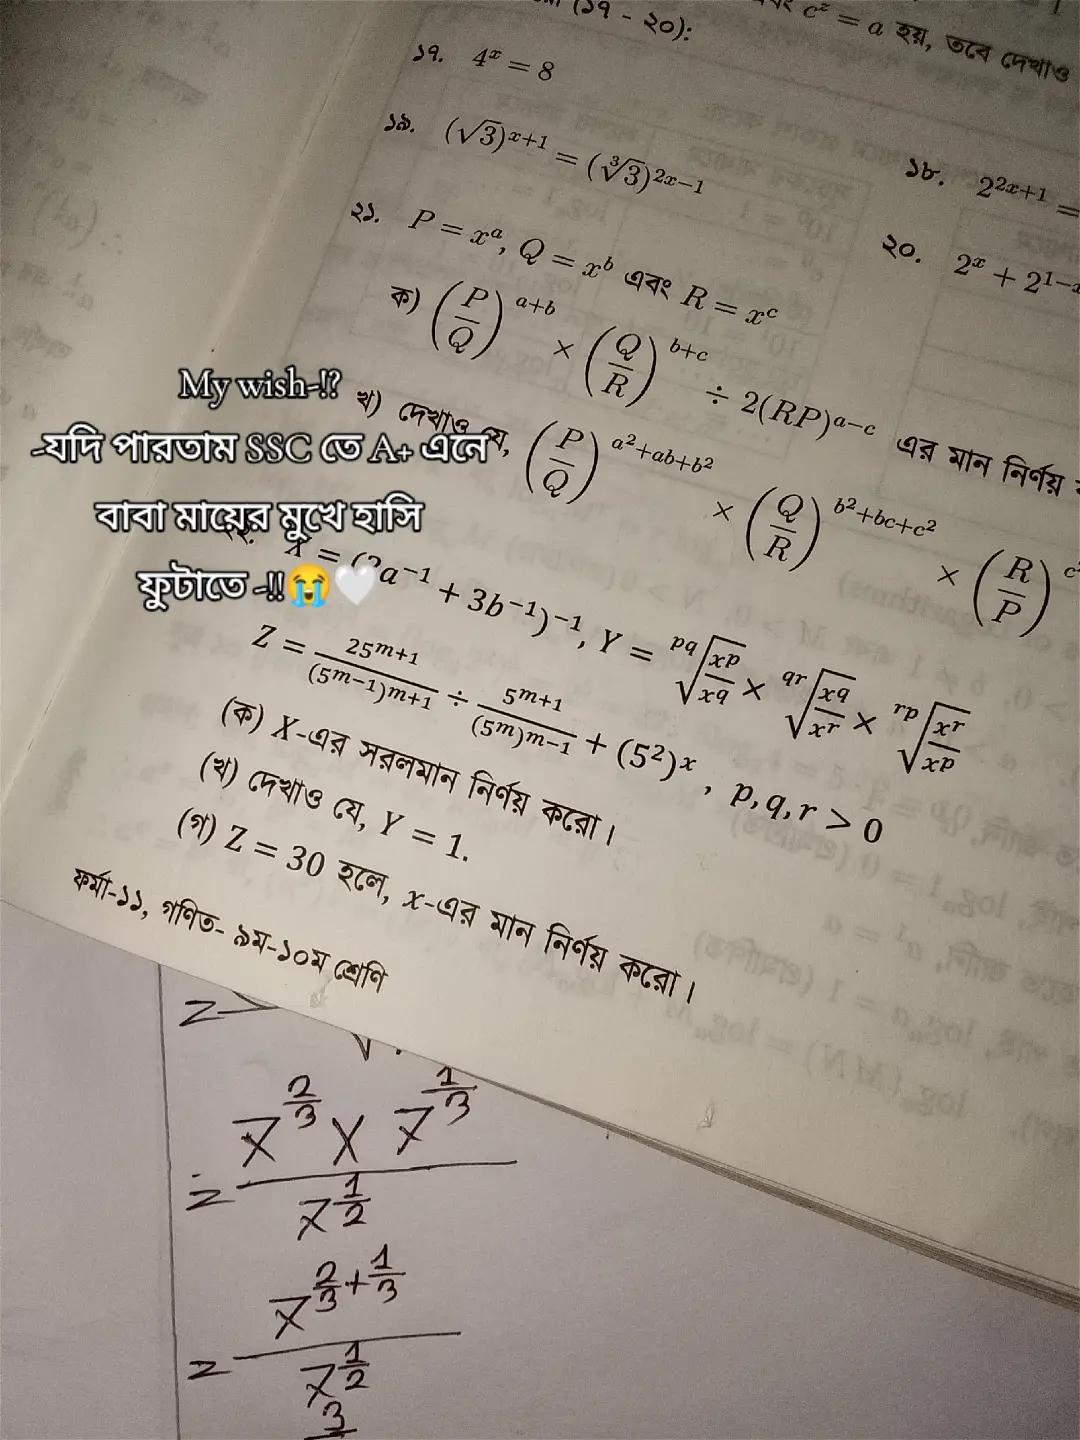 (১৭ - ২০):
c^z = a হয়, তবে দেখাও
১৭. 4^x = 8
১৮. 2^{2x+1} =
১৯. (√3)^{x+1} = (∛3)^{2x−1}
২০. 2^x + 2^{1−x}
২১. P = x^a, Q = x^b এবং R = x^c
ক) (P/Q)^{a+b} × (Q/R)^{b+c} ÷ 2(RP)^{a−c} এর মান নির্ণয়
খ) দেখাও যে, (P/Q)^{a²+ab+b²} × (Q/R)^{b²+bc+c²} × (R/P)^{c²
My wish-!?
-যদি পারতাম SSC তে A+ এনে
বাবা মায়ের মুখে হাসি
ফুটাতে -!!😭🤍
২২. X = (2a^{−1} + 3b^{−1})^{−1}, Y = \sqrt[pq]{x^p/x^q} × \sqrt[qr]{x^q/x^r} × \sqrt[rp]{x^r/x^p}
Z = 25^{m+1}/(5^{m−1})^{m+1} ÷ 5^{m+1}/(5^m)^{m−1} + (5²)^x, p, q, r > 0
(ক) X-এর সরলমান নির্ণয় করো।
(খ) দেখাও যে, Y = 1.
(গ) Z = 30 হলে, x-এর মান নির্ণয় করো।
ফর্মা-১১, গণিত- ৯ম-১০ম শ্রেণি
= 7^{2/3} × 7^{1/3} / 7^{1/2}
= 7^{2/3+1/3} / 7^{1/2}
3